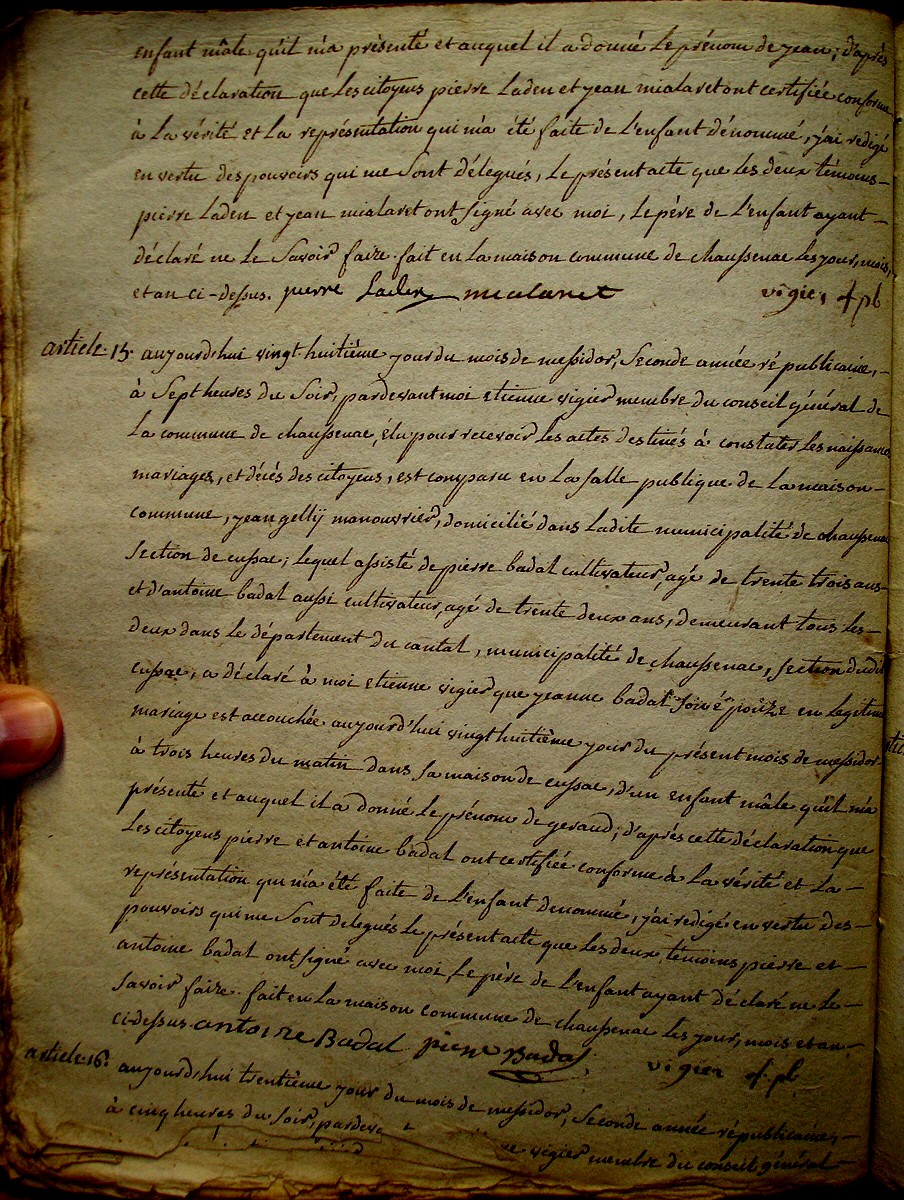 enfant mâle qu'il m'a présenté et auquel il a donné Le prénom de jean; d'après
cette déclaration que Les citoyens pierre Laden et jean mialaret ont certifiée conforme
à La vérité et La représentation qui m'a été faite de L'enfant dénommé, j'ai redigé
en vertu des pouvoirs qui me Sont délegués, Le présent acte que Les deux témoins-
pierre Laden et jean mialaret ont signé avec moi, Le père de L'enfant ayant-
déclaré ne Le Savoir faire. fait en La maison commune de chaussenac Les jour, mois,
et an ci-dessus. pierre Laden mialaret vigier of. pb
article 15. aujourd'hui vingt huitième jour du mois de messidor, Seconde année républicaine,-
à Sept heures du Soir, pardevant moi etienne vigier membre du conseil général de
La commune de chaussenac, élu pour recevoir Les actes destinés à constater Les naissances
mariages, et décés des citoyens, est comparu en La salle publique de La maison-
commune, jean gelly manouvrier, domicilié dans Ladite municipalité de chaussenac
Section de cussac; Lequel assisté de pierre badal cultivateur, agé de trente trois ans-
et d'antoine badal aussi cultivateur, agé de trente deux ans, demeurant tous Les-
deux dans Le département du cantal, municipalité de chaussenac, section dudit
cussac, a déclaré à moi etienne vigier que jeanne badal en Legitime
mariage est accouchée aujourd'hui vingt huitième jour du présent mois de messidor
à trois heures du matin dans sa maison de cussac, d'un enfant mâle qu'il m'a
présenté et auquel il a donné Le prénom de geraud; d'après cette déclaration que
Les citoyens pierre et antoine badal ont certifiée conforme à La vérité et La-
représentation qui m'a été faite de L'enfant denommé, j'ai redigé en vertu des-
pouvoirs qui me Sont delegués Le présent acte que Les deux témoins pierre et-
antoine badal ont signé avec moi, Le père de L'enfant ayant déclaré ne Le-
Savoir faire. fait en La maison commune de chaussenac Les jour, mois et an-
ci-dessus. antoine Badal pierre Badal vigier of. pb
article 16. aujourd'hui trentième jour du mois de messidor, Seconde année républicaine,-
à cinq heures du Soir, pardeva vigier membre du conseil général-